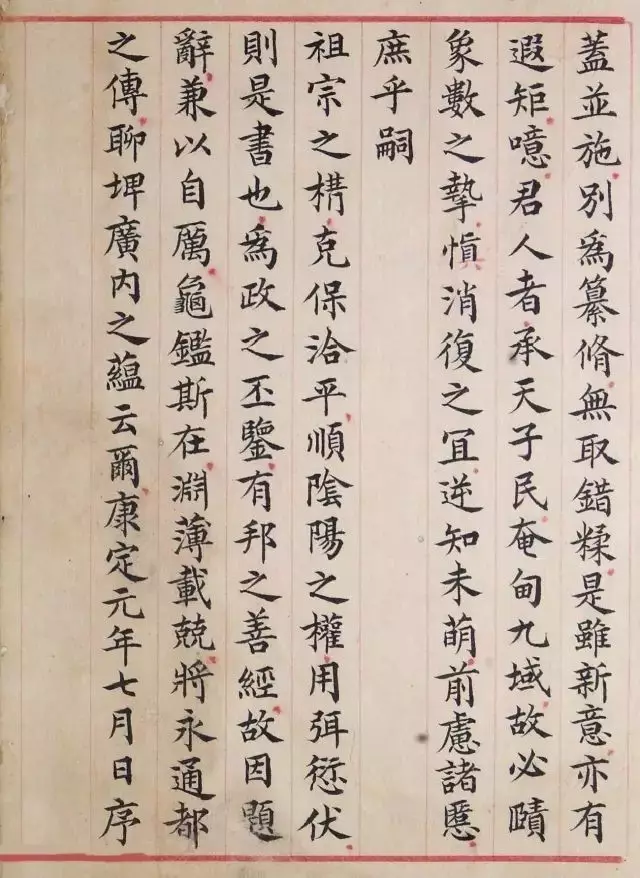 蓋並施別爲纂脩無取錯糅是雖新意亦有
遐矩噫君人者承天子民奄甸九域故必賾
象數之摯慎消復之宜逆知未萌前慮諸慝
庶乎嗣
祖宗之構克保洽平順陰陽之權用弭愆伏
則是書也爲政之丕鑒有邦之善經故因題
辭兼以自厲龜鑑斯在淵薄載兢將永通都
之傳聊埤廣內之蘊云爾康定元年七月日序